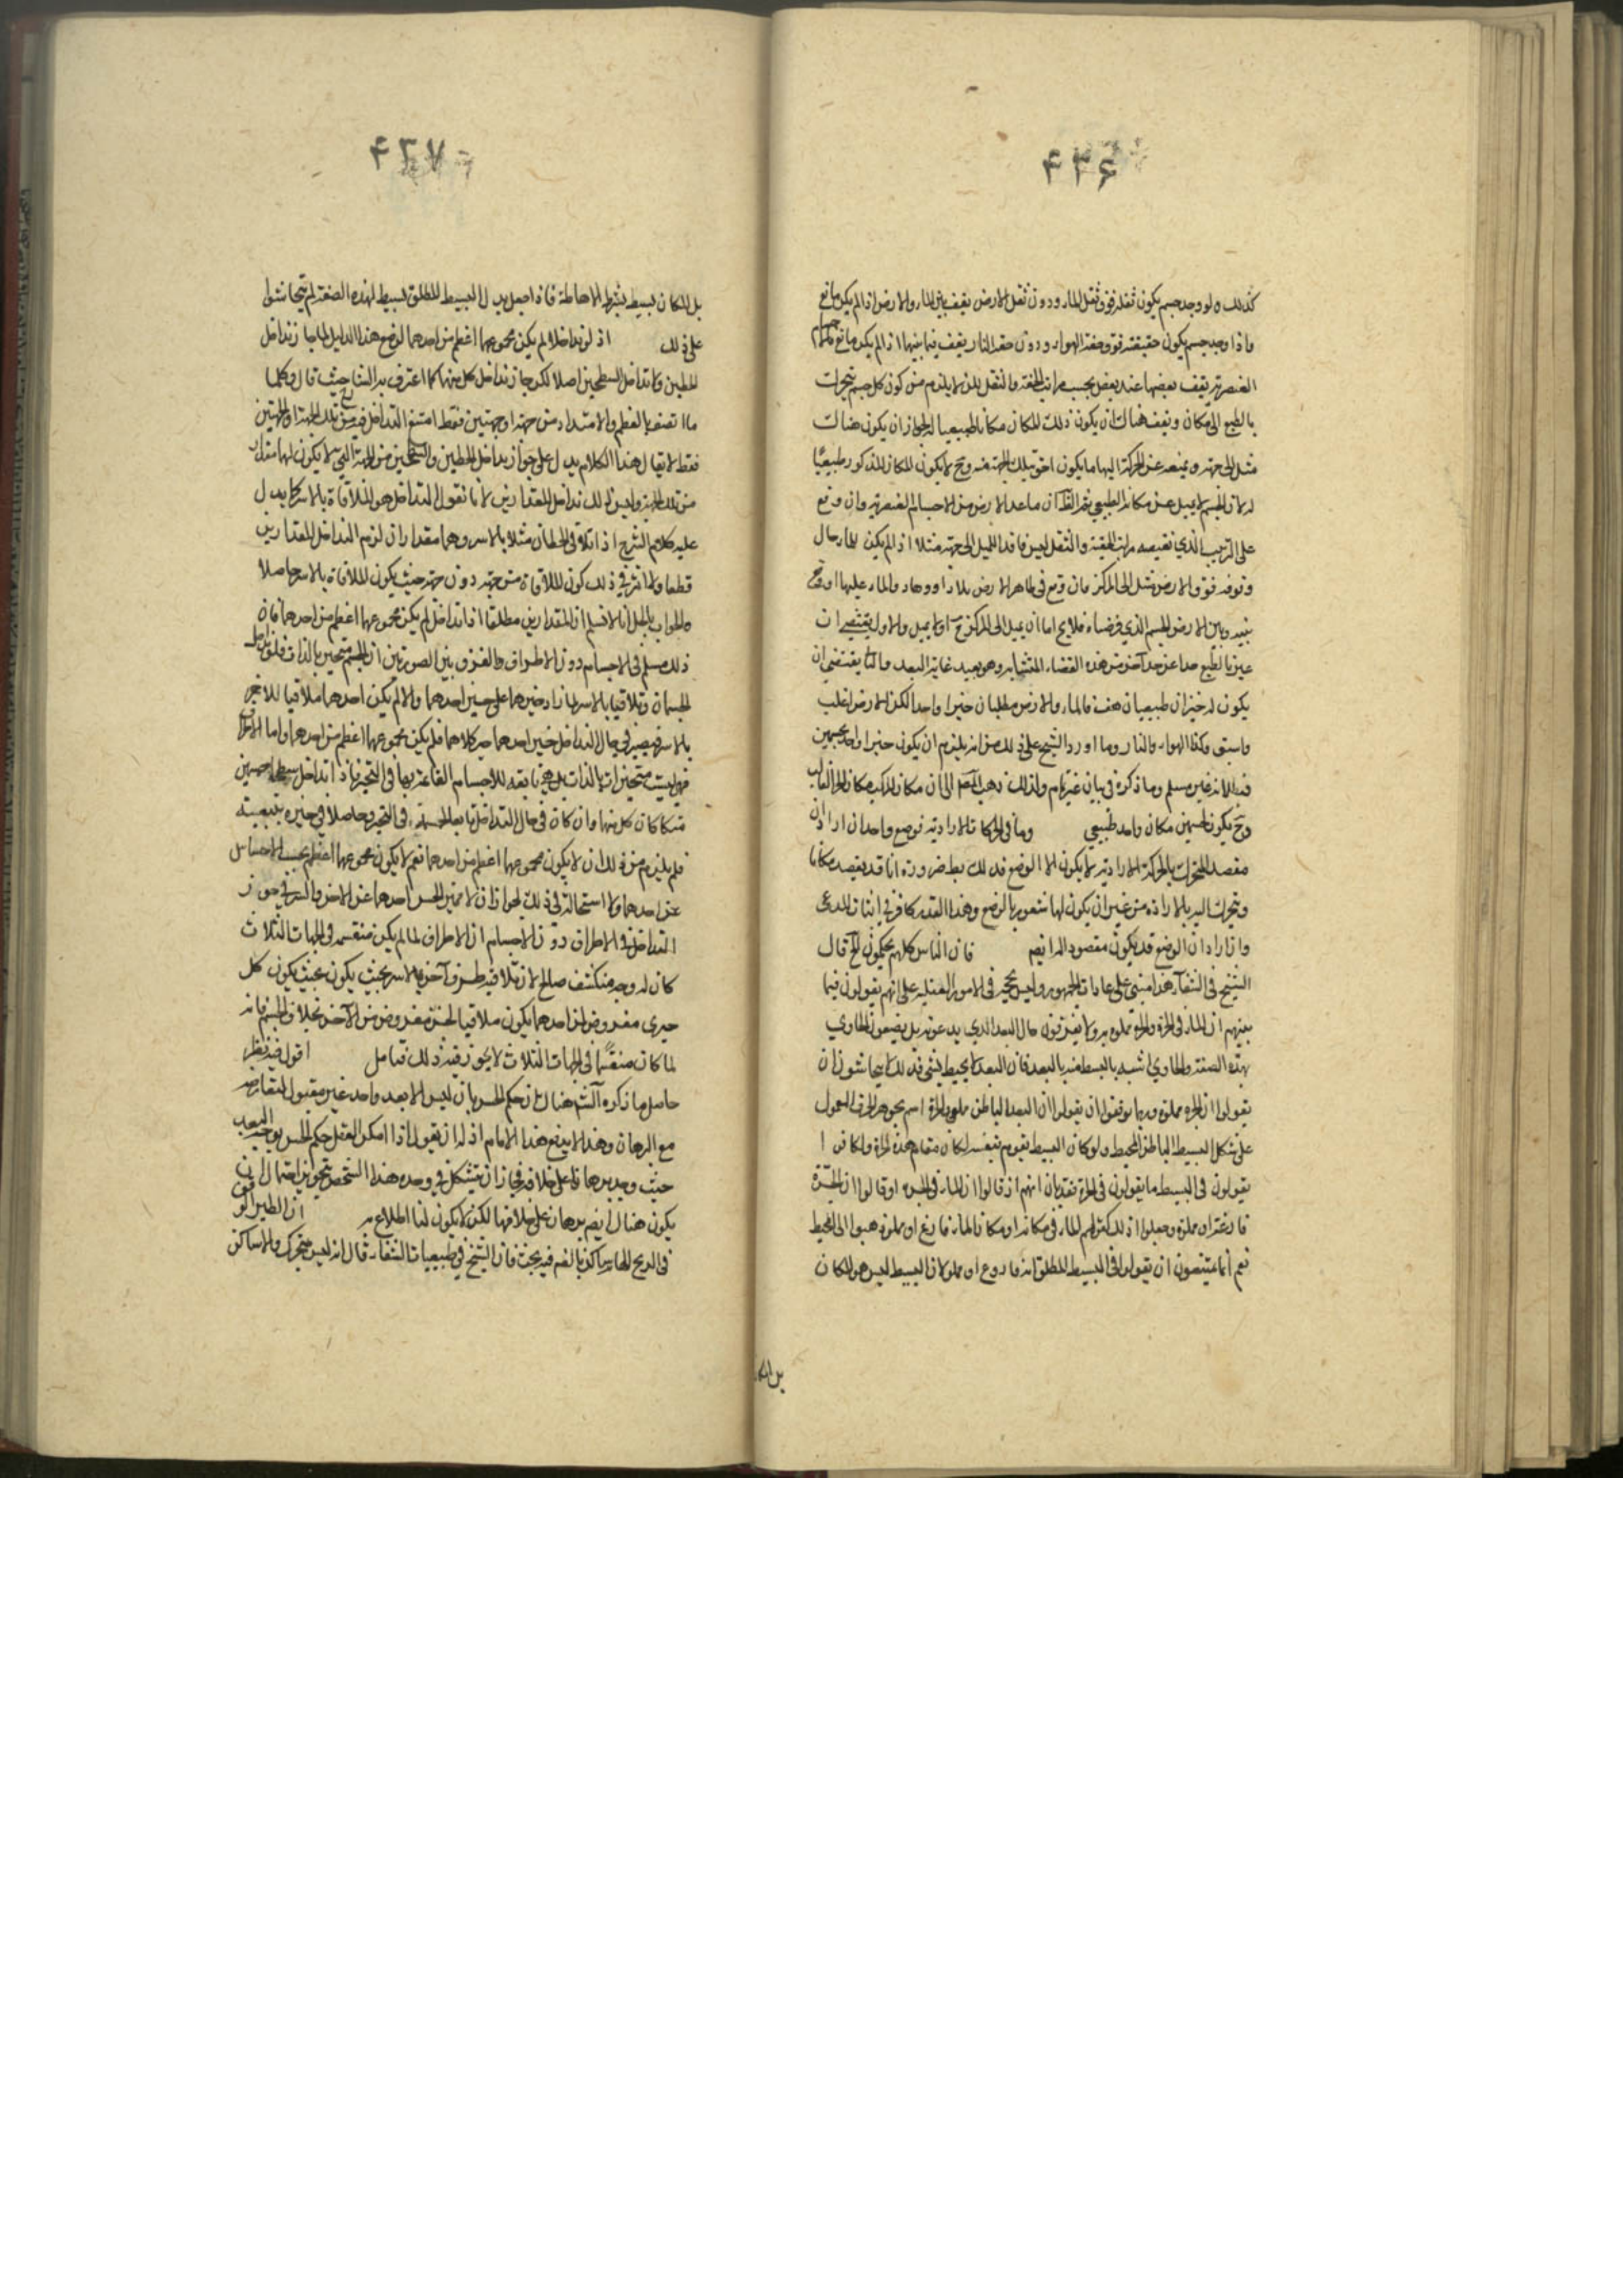 ۴۳۶
كذلك ولو وجد جسم يكون ثقله فوق ثقل الماء ودون ثقل الارض يقف بين الماء والارض اذا لم يكن مانع
واذا وجد جسم يكون خفته فوق خفة الهواء ودون خفة النار يقف فيما بينهما اذا لم يكن مانع
العنصرية يقف بعضها عند بعض بحسب مراتب الخفة والثقل لا يلزم من كون كل جسم يتحرك
بالطبع الى مكان ويقف هناك ان يكون ذلك المكان مكانا طبيعيا له لجواز ان يكون هناك
الى جهة ويمنعه عن الحركة اليها ما يكون اخق بتلك الجهة منه وح لا يكون المكان المذكور طبيعيا
له لان الجسم لا يميل عن مكانه الطبيعي ثم ان ما عدا الارض من الاجسام العنصرية وان وقع
على الترتيب الذي تقتضيه مراتب الخفة والثقل ليس فاقدا للميل الى جهة مثلا اذا لم يكن للماء حال
وقوفه فوق الارض ميل الى المركز فان وقع في ظاهر الارض بلاد او وهاد والماء عليها
بينه وبين الارض الجسم الذي فرضناه فلا يخ اما ان يميل الى المركز ح او لا يميل والاول يقتضي ان
عين بالطبع حدا عن حد آخر من هذه الفضاء المتشابه وهو بعيد غاية البعد والثا يقتضي ان
يكون له حيزان طبيعيان هف فالماء والارض يطلبان حيزا واحدا لكن الارض اغلب
واسبق وكذا الهواء والنار وما اورد الشيخ على ذلك من انه يلزم ان يكون حيز واحد لجسمين
فبطلانه غير مسلم وما ذكره في بيانه غير تام ولذلك ذهب الى ان مكان المركب مكان الجزء الغالب
وح يكون لجسمين مكان واحد طبيعي واما في الحركات الارادية فوضع واحد ان اراد ان
مقصد المتحرك بالحركة الارادية لا يكون الا الوضع فذلك بط ضرورة انا قد يقصد مكانا
ويتحرك اليه بالارادة من غير ان يكون لها شعور بالوضع وهذا القدر كاف في اثبات المدعى
وان اراد ان الوضع قد يكون مقصود الم ايضا فان الناس كلهم يحكمون الخ قال
الشيخ في الشفاء هذا مبني على عادات الجمهور وليس بحجة في الامور العقلية على انهم يقولون فيما
بينهم ان الماء في الجرة والجرة مملوة به ولا يفرقون حال البعد الذي يدعونه بل يصفون الحاوي
بهذه الصفة والحاوي اشبه بالبسيط منه بالبعد فان البعد لا يحيط بشئ فذلك لا يتحاشون ان
يقولوا ان الجرة مملوة وربما توقفوا ان يقولوا ان البعد الباطن مملو والجرة اسم لجوهر الخزف المعمول
على شكل البسيط الباطن المحيط ولو كان البسيط يقوم بنفسه لكان مقام هذه الجرة ولكانوا
يقولون في البسيط ما يقولون في الجرة فقد بان انهم اذ قالوا ان الماء في الجرة او قالوا ان الجرة
فارغة او مملوة وجعلوا ذلك كقولهم الماء في مكانه او مكان الماء فارغ او مملو ذهبوا الى المحيط
نعم انما يمتنعون ان يقولوا في البسيط المطلق انه فارغ او مملو لان البسيط ليس هو المكان
بل المكا
۴۳۷
بل المكان بسيط بشرط الاحاطة فاذا جعل بدل البسيط المطلق بسيط بهذه الصفة لم يتحاشوا
على ذلك اذ لو تداخلا لم يكن مجموعهما اعظم من احدهما لو صح هذا الدليل لما جاز تداخل
الخطين ولا تداخل السطحين اصلا لكن جاز تداخل كل منهما كما اعترف به الشا حيث قال وكلما
ما اتصف بالعظم والامتداد من جهة او جهتين فقط امتنع التداخل فيه من تلك الجهة او الجهتين
فقط لا يقال هذا الكلام يدل على جواز تداخل الخطين والسطحين من الجهة التي لا يكون لها مقدار
من تلك الجهة وليس ذلك تداخل المقدارين لانا نقول التداخل هو الملاقاة بالاسر كما يدل
عليه كلام الشرح اذا تلاقى الخطان مثلا بالاسر وهما مقداران لزم التداخل المقدارين
قطعا ولا اثر في ذلك كون الملاقاة من جهة دون جهة حيث يكون الملاقاة بالاسر حاصلا
والجواب بالجملة انا لا نسلم ان المقدارين مطلقا اذا تداخلا لم يكن مجموعهما اعظم من احدهما فان
ذلك مسلم في الاجسام دون الاطراف والفرق بين الصورتين ان الجسم متحيز بالذات فلو تداخل
الجسمان وتلاقيا بالاسر لزاد حيزهما على حيز احدهما والا لم يكن احدهما ملاقيا للآخر
بالاسر فيصير في حال التداخل حيز احدهما حيز كلاهما فلم يكن مجموعهما اعظم من احدهما واما الاطراف
فهي ليست متحيزات بالذات بل هي تابعة للاجسام القائمة بها في التحيز فاذا تداخل سطحا جسمين
كان كل منهما وان كان في حال التداخل تابعا لجسمه في التحيز وحاصلا في حيزه بتبعيته
فلم يلزم من ذلك ان لا يكون مجموعهما اعظم من احدهما نعم لا يكون مجموعهما اعظم بحسب الاحساس
عن احدهما ولا استحالة في ذلك لجواز ان لا يميز الحس احدهما عن الاخر والسر في جواز
التداخل في الاطراف دون الاجسام ان الاطراف لما لم يكن منقسمة في الجهات الثلاث
كان له وجه منكشف صالح لان يلاقيه طرف آخر بالاسر بحيث يكون بحيث يكون كل
جزء مفروض من احدهما يكون ملاقيا لجزء مفروض من الآخر بخلاف الجسم فانه
لما كان منقسما في الجهات الثلاث لا يجوز فيه ذلك فتامل اقول فيه نظر
حاصل ما ذكره الش هناك ان حكم الحس بان ليس الا بعد واحد غير مقبول لمعارضته
مع البرهان وهذا لا ينفع هذا الامام اذ له ان يقول اذا امكن العقل حكم الحس بوحدة البعد
حيث وجد برهانا على خلافه فجاز ان يتشكل في وحدة هذا الشخص بتجويز احتمال ان
يكون هناك ايضا برهان على خلافها لكن لا يكون لنا اطلاع به ان الطير الواقف
في الريح الهابة ساكن بالضم فيه بحث فان الشيخ في طبيعيات الشفاء قال انه ليس بمتحرك ولا ساكن